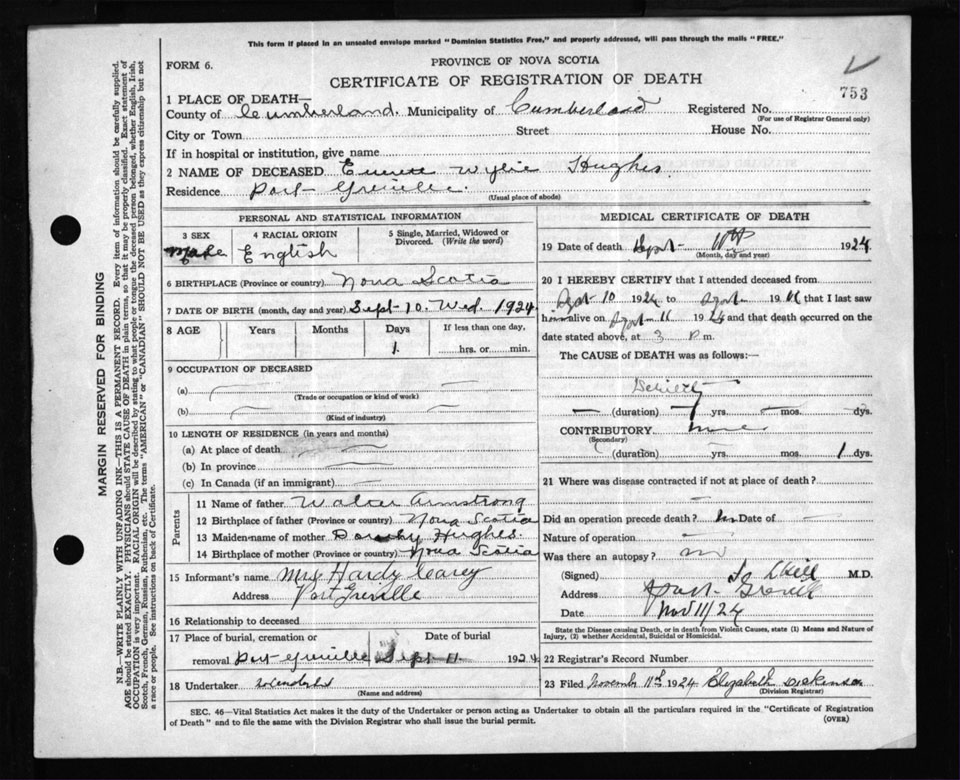 This form if placed in an unsealed envelope marked "Dominion Statistics Free," and properly addressed, will pass through the mails "FREE."
FORM 6.
PROVINCE OF NOVA SCOTIA
CERTIFICATE OF REGISTRATION OF DEATH
753
1 PLACE OF DEATH—
County of Cumberland. Municipality of Cumberland Registered No.
(For use of Registrar General only)
City or Town Street House No.
If in hospital or institution, give name
2 NAME OF DECEASED Everett Wylie Hughes.
Residence Port Greville.
(Usual place of abode)
PERSONAL AND STATISTICAL INFORMATION
3 SEX 4 RACIAL ORIGIN 5 Single, Married, Widowed or Divorced. (Write the word)
Male English
6 BIRTHPLACE (Province or country) Nova Scotia
7 DATE OF BIRTH (month, day and year) Sept-10. Wed. 1924
8 AGE Years Months Days If less than one day,
1. hrs. or min.
9 OCCUPATION OF DECEASED
(a)
(Trade or occupation or kind of work)
(b)
(Kind of industry)
10 LENGTH OF RESIDENCE (in years and months)
(a) At place of death
(b) In province
(c) In Canada (if an immigrant)
Parents
11 Name of father Walter Armstrong
12 Birthplace of father (Province or country) Nova Scotia
13 Maiden-name of mother Dorothy Hughes.
14 Birthplace of mother (Province or country) Nova Scotia
15 Informant's name Mrs Hardy Carey
Address Port Greville
16 Relationship to deceased
17 Place of burial, cremation or Date of burial
removal Port Greville Sept 11. 1924
18 Undertaker
(Name and address)
MEDICAL CERTIFICATE OF DEATH
19 Date of death Sept- 11th 1924
(Month, day and year)
20 I HEREBY CERTIFY that I attended deceased from
Sept-10 1924 to Sept- 19 that I last saw
him alive on Sept 11 1924 and that death occurred on the
date stated above, at 3 P m.
The CAUSE of DEATH was as follows:—
(duration) yrs. mos. dys.
CONTRIBUTORY
(Secondary)
(duration) yrs. mos. 1 dys.
21 Where was disease contracted if not at place of death?
Did an operation precede death? Date of
Nature of operation
Was there an autopsy? no
(Signed) Hill M.D.
Address Port Greville
Date Nov 11/24
State the Disease causing Death, or in death from Violent Causes, state (1) Means and Nature of Injury, (2) whether Accidental, Suicidal or Homicidal.
22 Registrar's Record Number
23 Filed November 11th 1924 Elizabeth Dickinson
(Division Registrar)
SEC. 46—Vital Statistics Act makes it the duty of the Undertaker or person acting as Undertaker to obtain all the particulars required in the "Certificate of Registration
of Death" and to file the same with the Division Registrar who shall issue the burial permit.
(OVER)
MARGIN RESERVED FOR BINDING
N.B.—WRITE PLAINLY WITH UNFADING INK—THIS IS A PERMANENT RECORD. Every item of information should be carefully supplied.
AGE should be stated EXACTLY. PHYSICIANS should STATE CAUSE OF DEATH in plain terms, so that it may be properly classified. Exact statement of
OCCUPATION is very important. RACIAL ORIGIN will be described by stating to what people or tongue the deceased person belonged, whether English, Irish,
Scotch, French, German, Russian, Ruthenian, etc. The terms "AMERICAN" or "CANADIAN" SHOULD NOT BE USED as they express citizenship but not
a race or people. See instructions on back of Certificate.